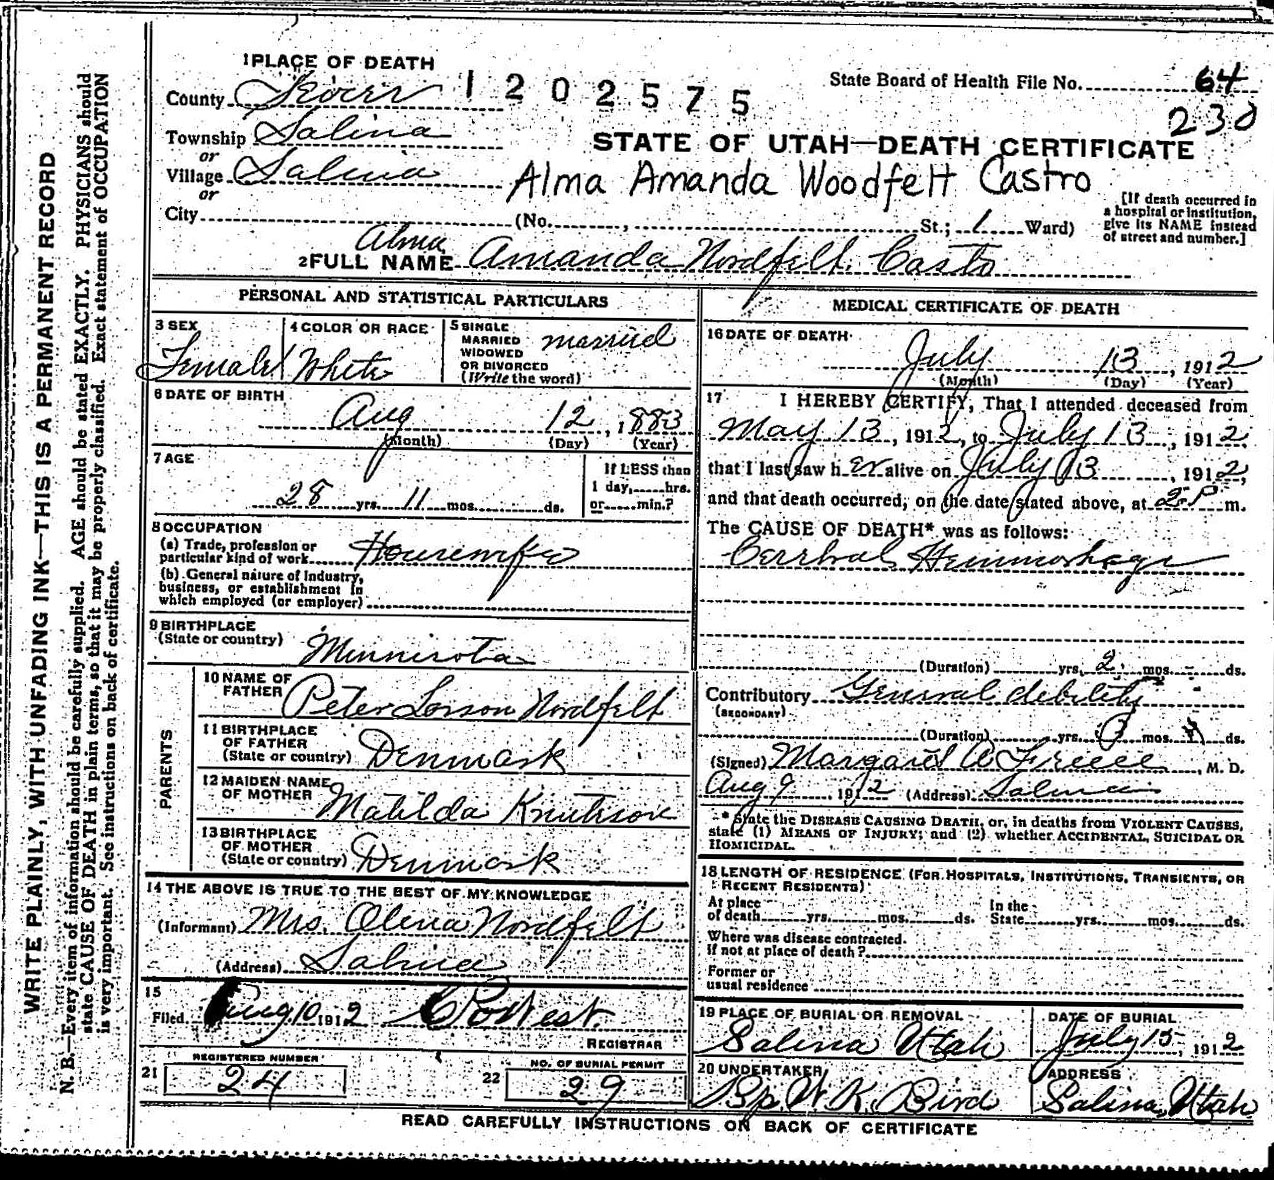 WRITE PLAINLY, WITH UNFADING INK—THIS IS A PERMANENT RECORD
N. B.—Every item of information should be carefully supplied. AGE should be stated EXACTLY. PHYSICIANS should
state CAUSE OF DEATH in plain terms, so that it may be properly classified. Exact statement of OCCUPATION
is very important. See instructions on back of certificate.
1 PLACE OF DEATH
County Sevier 1202575
State Board of Health File No. 64
230
Township Salina
or
Village Salina
or
City
STATE OF UTAH—DEATH CERTIFICATE
Alma Amanda Woodfelt Castro
(No. , St.; 1 Ward)
[If death occurred in
a hospital or institution,
give its NAME instead
of street and number.]
Alma
2 FULL NAME Amanda Nordfelt Casto
PERSONAL AND STATISTICAL PARTICULARS
3 SEX
Female
4 COLOR OR RACE
White
5 SINGLE
MARRIED
WIDOWED
OR DIVORCED
(Write the word)
married
6 DATE OF BIRTH
Aug 12, 1883
(Month) (Day) (Year)
7 AGE
28 yrs. 11 mos. ds.
If LESS than
1 day, hrs.
or min.?
8 OCCUPATION
(a) Trade, profession or
particular kind of work Housewife
(b) General nature of industry,
business, or establishment in
which employed (or employer)
9 BIRTHPLACE
(State or country) Minnisota
PARENTS
10 NAME OF
FATHER Peter Lorson Nordfelt
11 BIRTHPLACE
OF FATHER
(State or country) Denmark
12 MAIDEN NAME
OF MOTHER Matilda Knutson
13 BIRTHPLACE
OF MOTHER
(State or country) Denmark
14 THE ABOVE IS TRUE TO THE BEST OF MY KNOWLEDGE
(Informant) Mrs. Olena Nordfelt
(Address) Salina
15
Filed Aug 10 1912 West.
REGISTRAR
21 REGISTERED NUMBER
24
22 NO. OF BURIAL PERMIT
29
MEDICAL CERTIFICATE OF DEATH
16 DATE OF DEATH
July 13, 1912
(Month) (Day) (Year)
17 I HEREBY CERTIFY, That I attended deceased from
May 13, 1912, to July 13, 1912,
that I last saw her alive on July 13 1912,
and that death occurred, on the date stated above, at 2 P m.
The CAUSE OF DEATH* was as follows:
Cerrbral Hemmorhage
(Duration) yrs. 2 mos. - ds.
Contributory General debility
(SECONDARY)
(Duration) yrs. mos. ds.
(Signed) Margaret A Freece, M. D.
Aug 9 1912 (Address) Salina
* State the DISEASE CAUSING DEATH, or, in deaths from VIOLENT CAUSES,
state (1) MEANS OF INJURY; and (2) whether ACCIDENTAL, SUICIDAL OR
HOMICIDAL.
18 LENGTH OF RESIDENCE (FOR HOSPITALS, INSTITUTIONS, TRANSIENTS, OR
RECENT RESIDENTS)
At place
of death yrs. mos. ds.
In the
State yrs. mos. ds.
Where was disease contracted.
If not at place of death?
Former or
usual residence
19 PLACE OF BURIAL OR REMOVAL
Salina Utah
DATE OF BURIAL
July 15, 1912
20 UNDERTAKER
Bp. W. K. Bird
ADDRESS
Salina, Utah
READ CAREFULLY INSTRUCTIONS ON BACK OF CERTIFICATE